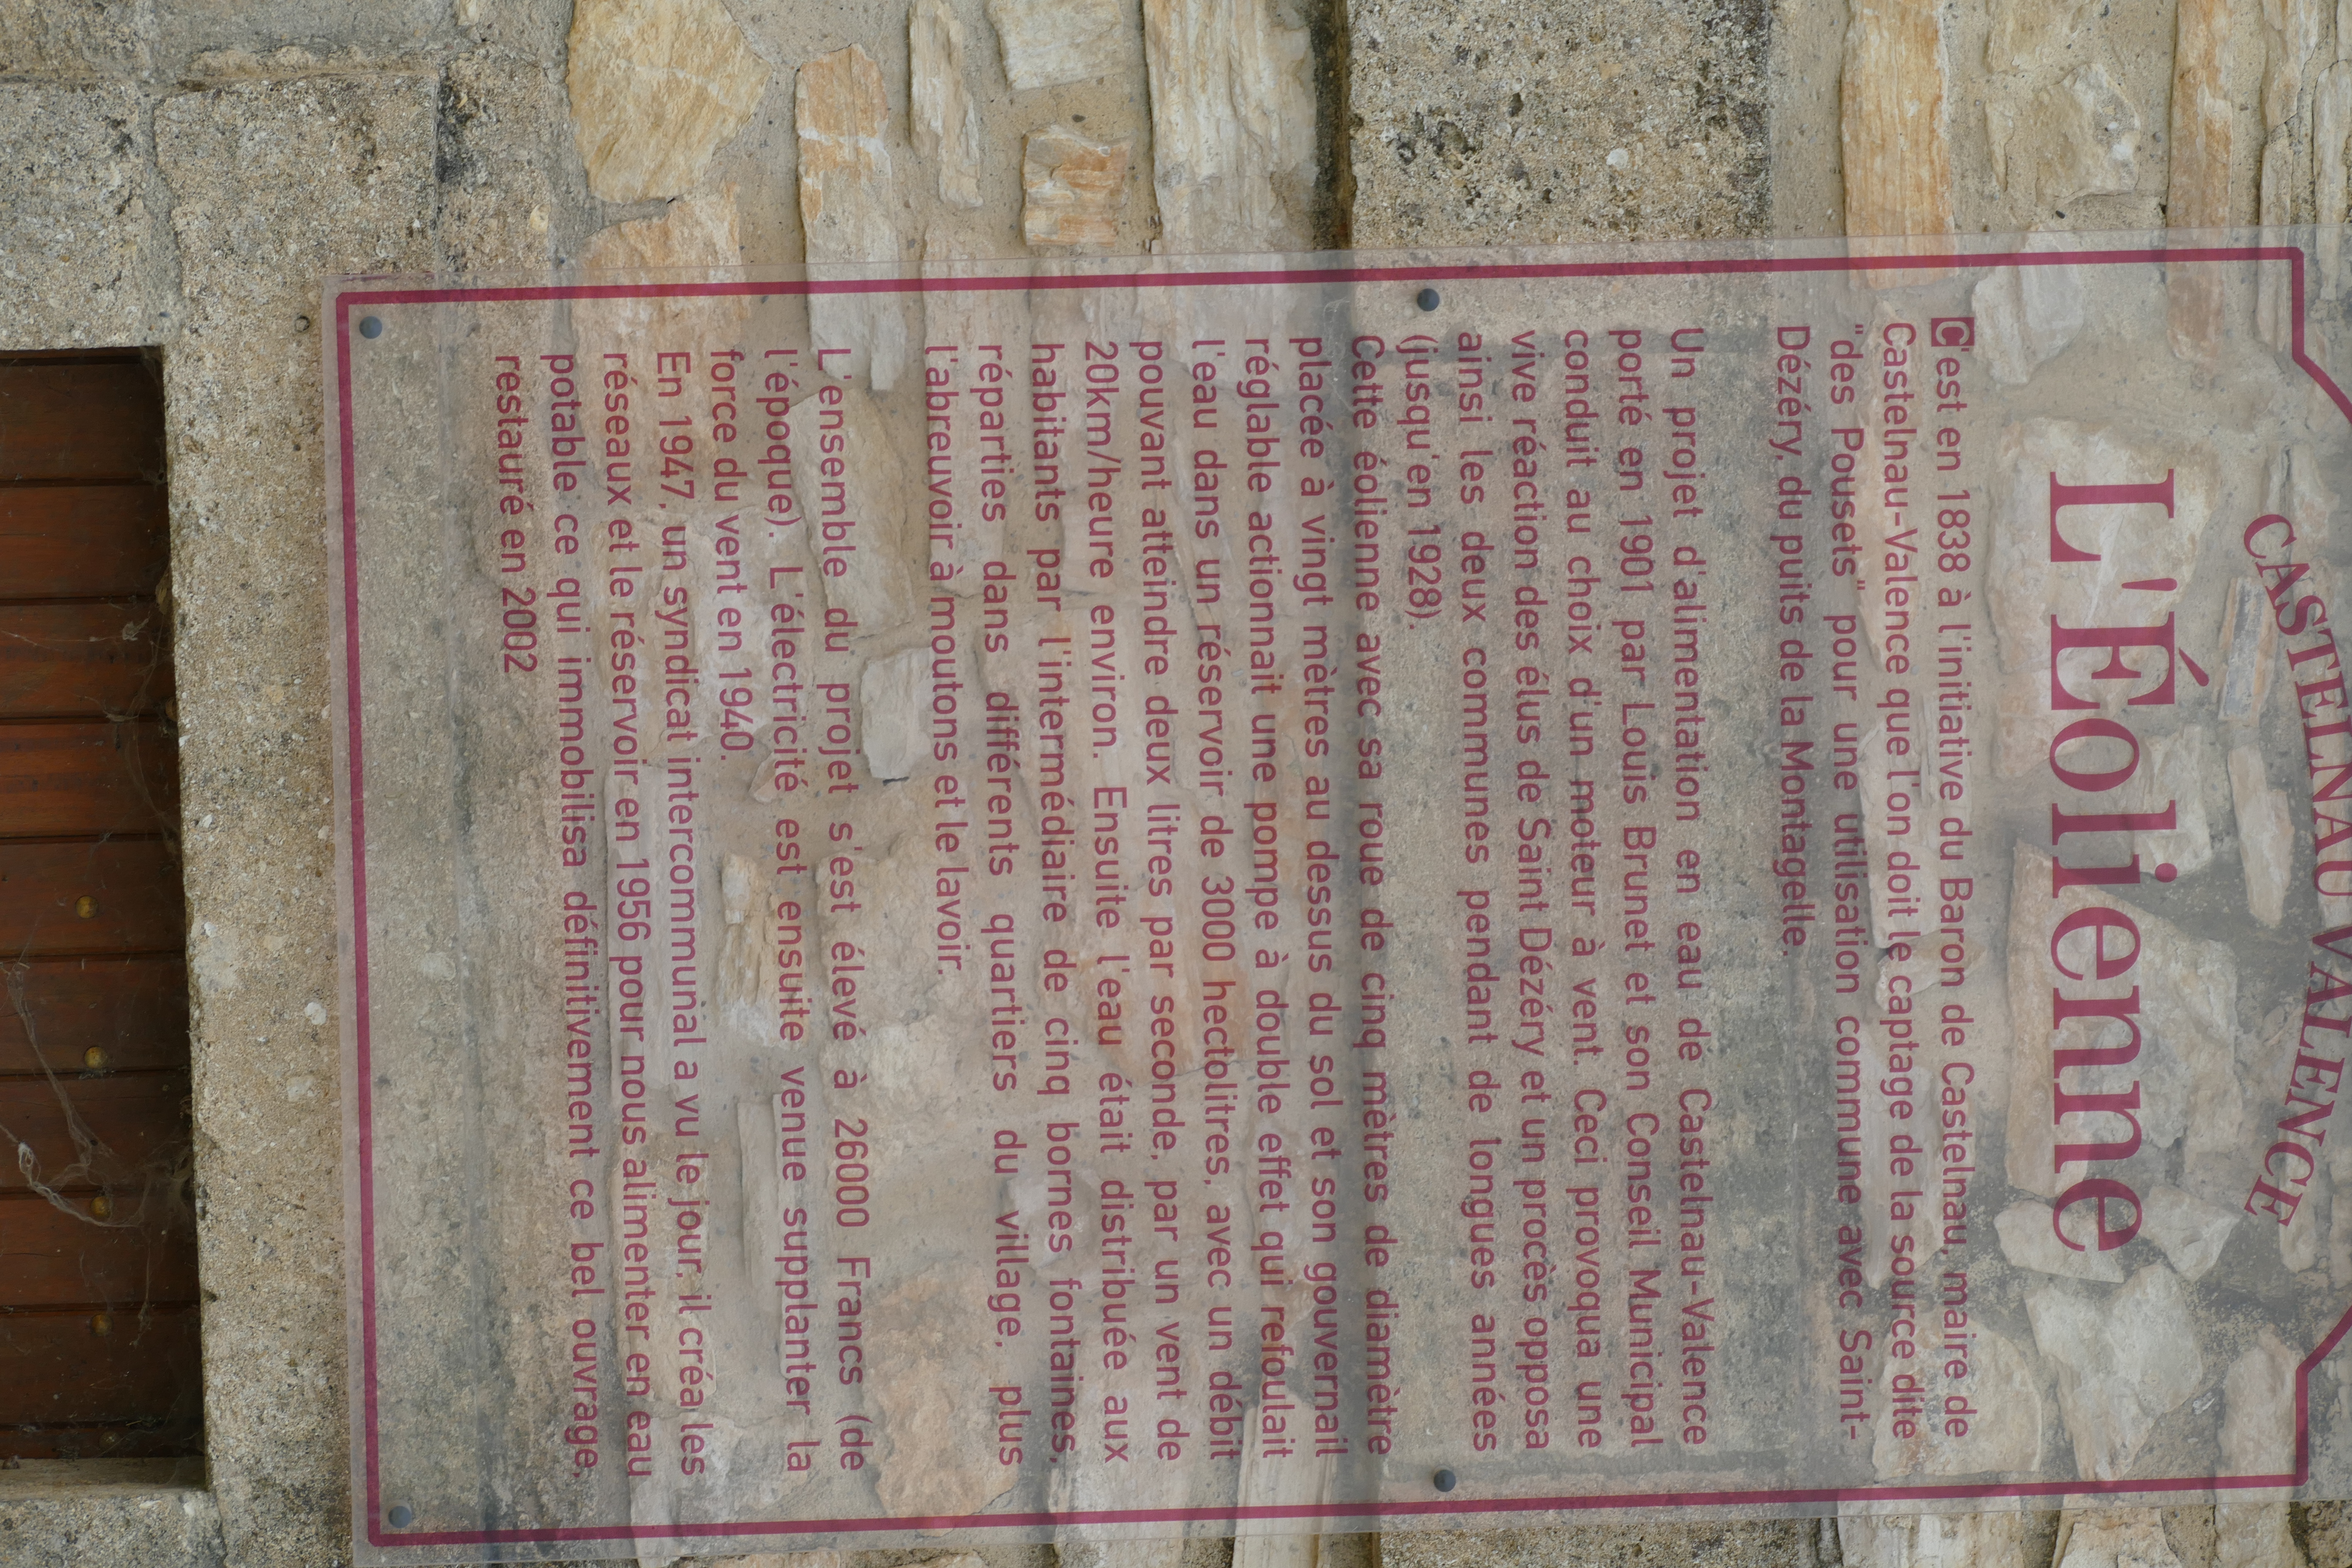 CASTELNAU VALENCE
L'Éolienne
C'est en 1838 à l'initiative du Baron de Castelnau, maire de
Castelnau-Valence que l'on doit le captage de la source dite
"des Pousets" pour une utilisation commune avec Saint-
Dézéry, du puits de la Montagelle.
Un projet d'alimentation en eau de Castelnau-Valence
porté en 1901 par Louis Brunet et son Conseil Municipal
conduit au choix d'un moteur à vent. Ceci provoqua une
vive réaction des élus de Saint Dézéry et un procès opposa
ainsi les deux communes pendant de longues années
(jusqu'en 1928).
Cette éolienne avec sa roue de cinq mètres de diamètre
placée à vingt mètres au dessus du sol et son gouvernail
réglable actionnait une pompe à double effet qui refoulait
l'eau dans un réservoir de 3000 hectolitres, avec un débit
pouvant atteindre deux litres par seconde, par un vent de
20km/heure environ. Ensuite l'eau était distribuée aux
habitants par l'intermédiaire de cinq bornes fontaines,
réparties dans différents quartiers du village, plus
l'abreuvoir à moutons et le lavoir.
L'ensemble du projet s'est élevé à 26000 Francs (de
l'époque). L'électricité est ensuite venue supplanter la
force du vent en 1940.
En 1947, un syndicat intercommunal a vu le jour, il créa les
réseaux et le réservoir en 1956 pour nous alimenter en eau
potable ce qui immobilisa définitivement ce bel ouvrage,
restauré en 2002